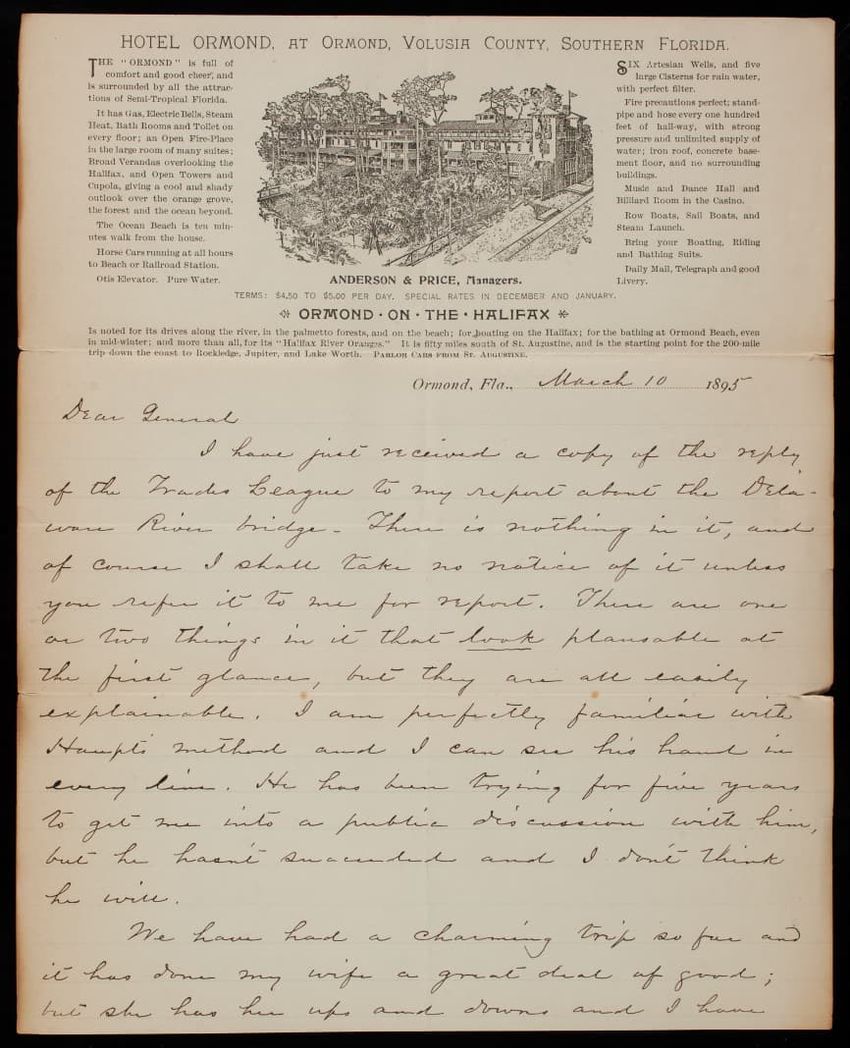 HOTEL ORMOND, AT ORMOND, VOLUSIA COUNTY, SOUTHERN FLORIDA.
THE "ORMOND" is full of
comfort and good cheer, and
is surrounded by all the attrac-
tions of Semi-Tropical Florida.
It has Gas, Electric Bells, Steam
Heat, Bath Rooms and Toilet on
every floor; an Open Fire-Place
in the large room of many suites;
Broad Verandas overlooking the
Halifax, and Open Towers and
Cupola, giving a cool and shady
outlook over the orange grove,
the forest and the ocean beyond.
The Ocean Beach is ten min-
utes walk from the house.
Horse Cars running at all hours
to Beach or Railroad Station.
Otis Elevator. Pure Water.
SIX Artesian Wells, and five
large Cisterns for rain water,
with perfect filter.
Fire precautions perfect; stand-
pipe and hose every one hundred
feet of hall-way, with strong
pressure and unlimited supply of
water; iron roof, concrete base-
ment floor, and no surrounding
buildings.
Music and Dance Hall and
Billiard Room in the Casino.
Row Boats, Sail Boats, and
Steam Launch.
Bring your Boating, Riding
and Bathing Suits.
Daily Mail, Telegraph and good
Livery.
ANDERSON & PRICE, Managers.
TERMS: $4.50 TO $5.00 PER DAY. SPECIAL RATES IN DECEMBER AND JANUARY.
ORMOND · ON · THE · HALIFAX
Is noted for its drives along the river, in the palmetto forests, and on the beach; for boating on the Halifax; for the bathing at Ormond Beach, even
in mid-winter; and more than all, for its "Halifax River Oranges." It is fifty miles south of St. Augustine, and is the starting point for the 200-mile
trip down the coast to Rockledge, Jupiter, and Lake Worth. PARLOR CARS FROM ST. AUGUSTINE.
Ormond, Fla., March 10 1895
Dear General
I have just received a copy of the reply
of the Trades League to my report about the Dela-
ware River bridge. There is nothing in it, and
of course I shall take no notice of it unless
you refer it to me for report. There are one
or two things in it that look plausable at
the first glance, but they are all easily
explainable. I am perfectly familiar with
Haupt's method and I can see his hand in
every line. He has been trying for five years
to get me into a public discussion with him,
but he hasn't succeeded and I don't think
he will.
We have had a charming trip so far and
it has done my wife a great deal of good;
but she has her ups and downs and I have